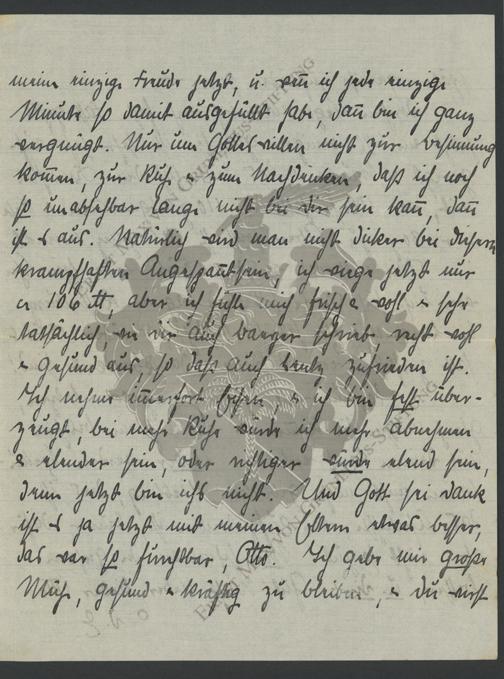 meine einzige Freude jetzt, u. weñ ich jede einzige
Minute so damit ausgefüllt habe, dañ bin ich ganz
vergnügt. Nur um Gottes willen nicht zur Besinnung
kom̄en, zur Ruh & zum Nachdenken, daß ich noch
so unabsehbar lange nicht bei dir sein kañ, dañ
ist es aus. Natürlich wird man nicht dicker bei diesem
krampfhaften Angespañtsein, ich wiege jetzt nur
ca 106 ℔, aber ich fühle mich frisch & wohl & sehe
tatsächlich, wie dir auch Waeger schrieb, recht wohl
& gesund aus, so daß auch Lentz zufrieden ist.
Ich nehme im̄erfort Eisen, & ich bin fest über-
zeugt, bei mehr Ruhe würde ich mehr abnehmen
& elender sein, oder richtiger würde elend sein,
denn jetzt bin ichs nicht. Und Gott sei dank
ist es ja jetzt mit meinen Eltern etwas besser,
das war so furchtbar, Otto. Ich gebe mir große
Mühe, gesund & kräftig zu bleiben, & du wirst